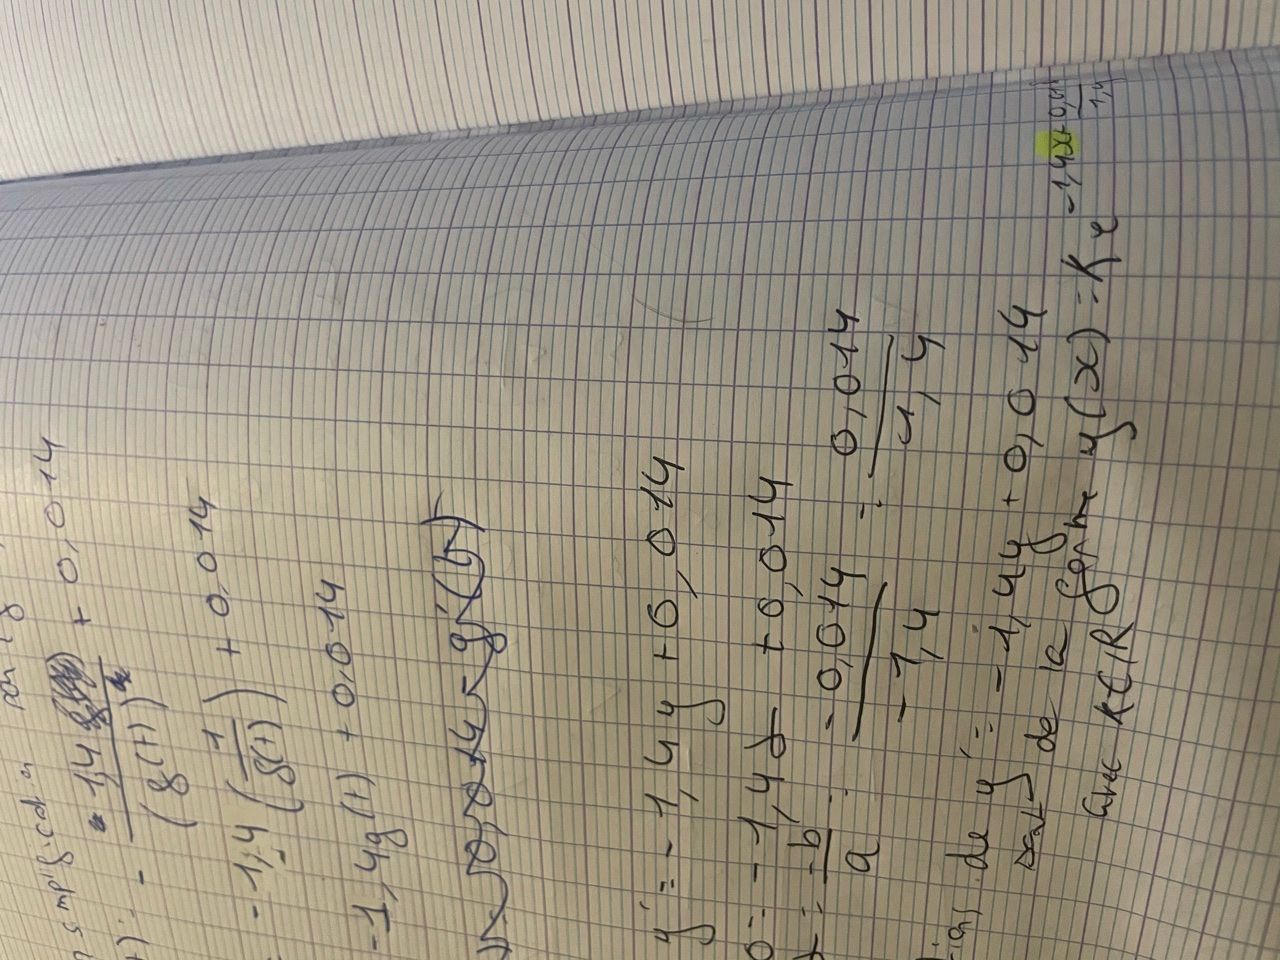 simplification par g
= - 1,4 / (g(t)) + 0,014
- 1,4 (1/g(t)) + 0,014
-1,4g(t) + 0,014
y' = -1,4y + 0,014
0 = -1,4y + 0,014
y = -b/a = -0,014/-1,4 = 0,014/1,4
de y' = -1,4y + 0,014
sont de la forme y(x) = Ke^-1,4x + 0,014/1,4
avec K∈ℝ